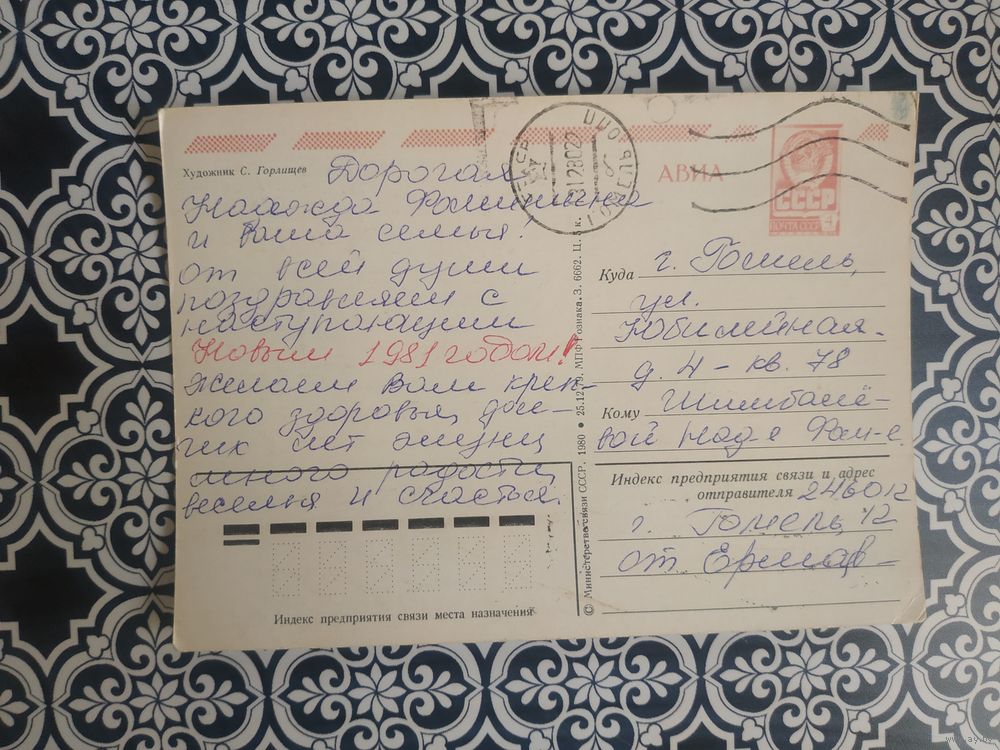 Художник С. Горлищев
Дорогая
Надежда Фоминична
и Ваша семья!
от всей души
поздравляем с
наступающим
Новым 1981 годом!
Желаем Вам креп-
кого здоровья, дол-
гих лет жизни,
много радости,
веселья и счастья.
Индекс предприятия связи места назначения
© Министерство связи СССР, 1980 • 25.12.79. МПФ Гознака. З. 6862. Ц. 5 к.
АВИА
СССР
ПОЧТА СССР 4
ГОМЕЛЬ
Куда г. Гомель,
ул.
Юбилейная-
д. 4 - кв. 78
Кому
вой Над-е Фом-е.
Индекс предприятия связи и адрес
отправителя 246012
г. Гомель, 12
от